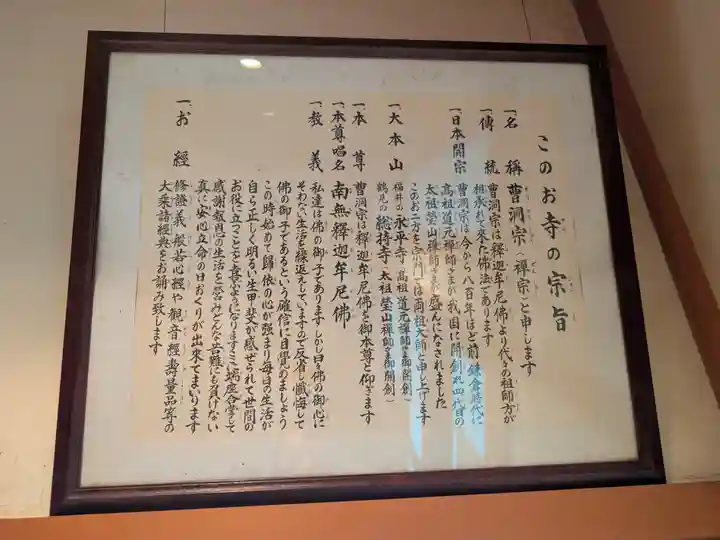 このお寺の宗旨
一、名稱 曹洞宗(禅宗)と申します
一、傳統 曹洞宗は釋迦牟尼佛より代々の祖師方が
相承されて来た佛法であります
一、日本開宗 曹洞宗は今から八百年ほど前鎌倉時代に
高祖道元禅師さまが我国に開創され四代目の
太祖瑩山禅師さまが盛んになされました
このお二方を宗門では両祖大師と申し上げます
一、大本山 福井の永平寺(高祖道元禅師さま御開創)
鶴見の總持寺(太祖瑩山禅師さま御開創)
一、本尊 曹洞宗は釋迦牟尼佛を御本尊と仰ぎます
一、本尊唱名 南無釋迦牟尼佛
一、教義 私達は佛の御子でありますしかし日々佛の御心に
そわない生活を繰返えしていますので反省し懺悔して
佛の御子であるという確信に目覚めましよう
この時始めて歸依の心が強まり毎日の生活が
自ら正しく明るい生甲斐が感ぜられて世間の
お役に立つことを喜ぶようになりますと端座合掌して
感謝報恩の生活を営みどんな苦難にも負けない
真に安心立命の日おくりが出来てまいります
一、お經 修證義般若心經や觀音經壽量品等の
大乗諸經典をお誦み致します